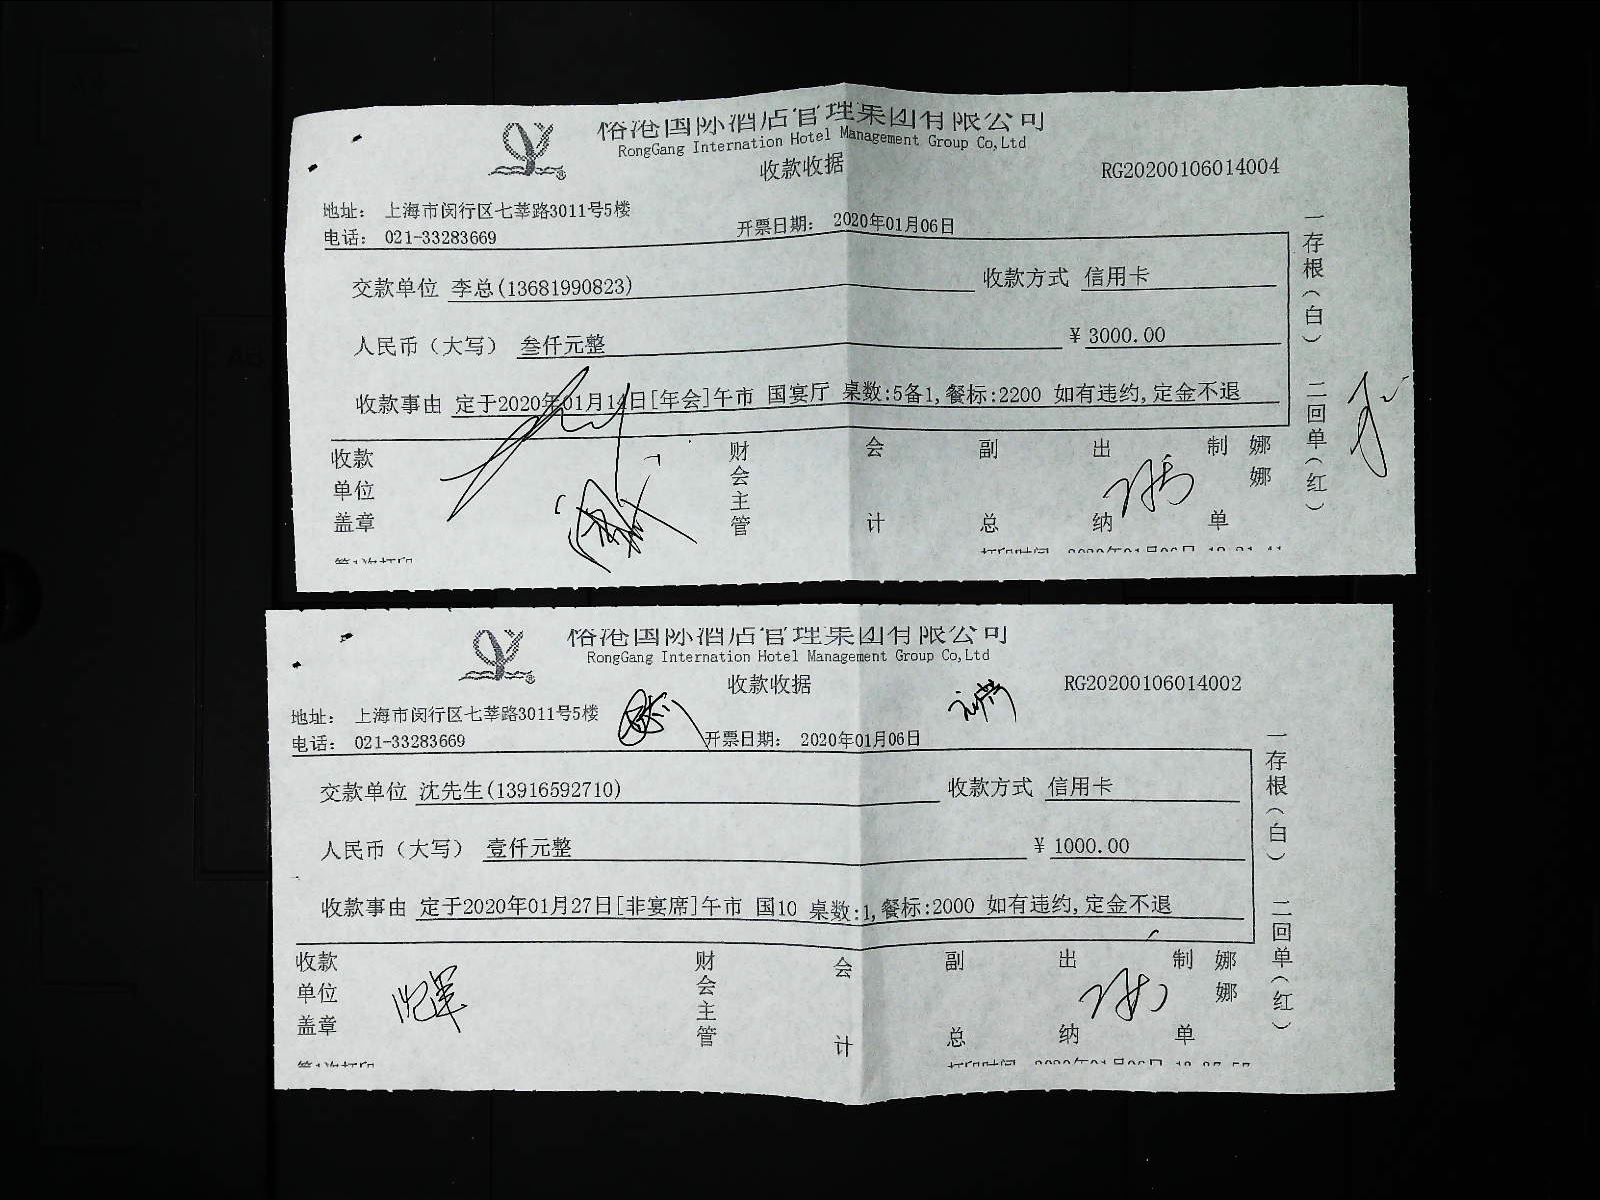 榕港国际酒店管理集团有限公司
RongGang Internation Hotel Management Group Co,Ltd
收款收据
RG20200106014004
地址： 上海市闵行区七莘路3011号5楼
电话： 021-33283669
开票日期： 2020年01月06日
交款单位 李总(13681990823) 收款方式 信用卡
人民币（大写） 叁仟元整 ￥3000.00
收款事由 定于2020年01月14日[年会]午市 国宴厅 桌数:5备1,餐标:2200 如有违约,定金不退
收款单位盖章 财会主管 会计 副总 出纳 制单 娜娜
一存根（白） 二回单（红）
第1次打印
榕港国际酒店管理集团有限公司
RongGang Internation Hotel Management Group Co,Ltd
收款收据
RG20200106014002
地址： 上海市闵行区七莘路3011号5楼
电话： 021-33283669
开票日期： 2020年01月06日
交款单位 沈先生(13916592710) 收款方式 信用卡
人民币（大写） 壹仟元整 ￥1000.00
收款事由 定于2020年01月27日[非宴席]午市 国10 桌数:1,餐标:2000 如有违约,定金不退
收款单位盖章 财会主管 会计 副总 出纳 制单 娜娜
一存根（白） 二回单（红）
第1次打印